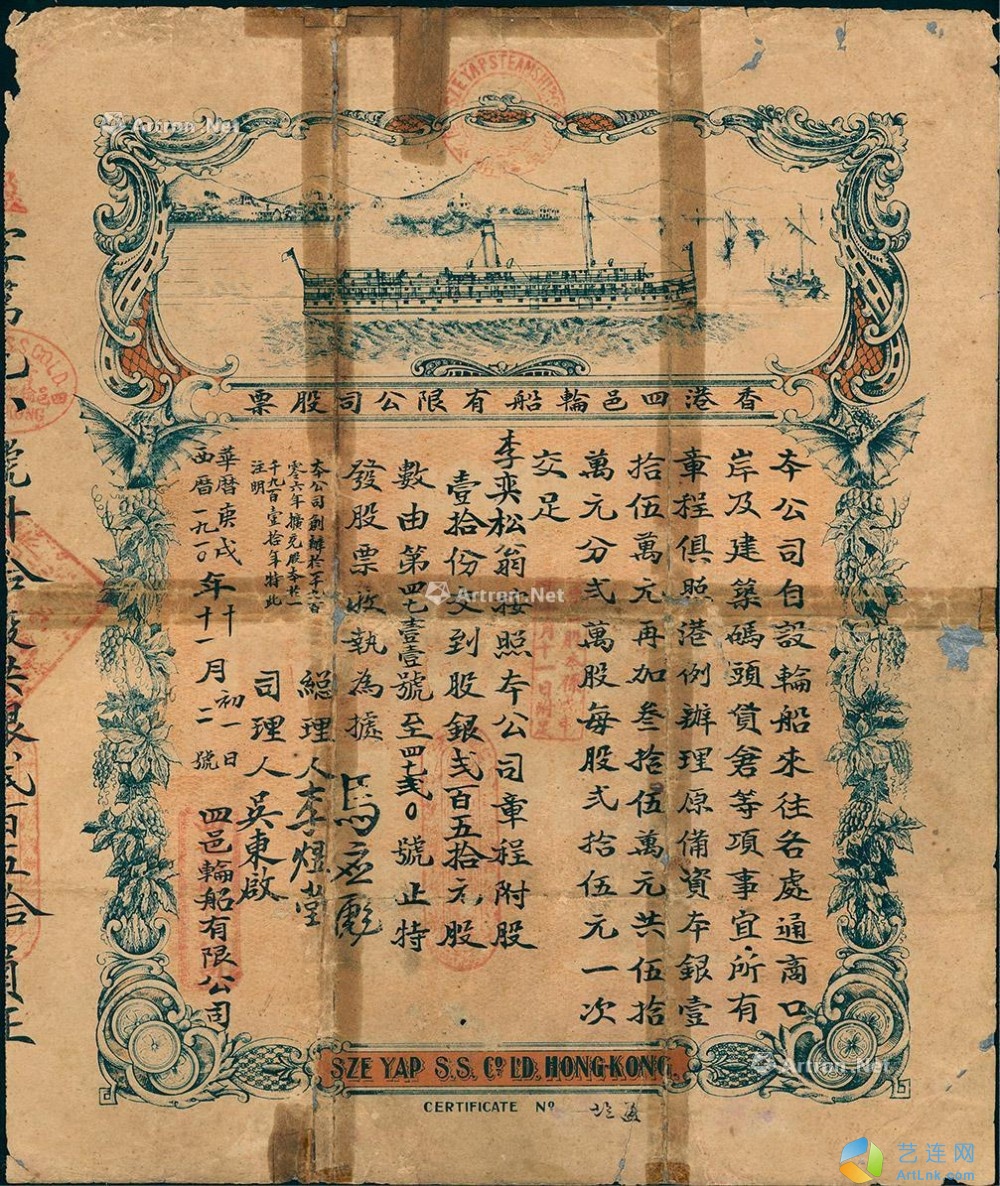 SZE YAP STEAMSHIP
香港四邑輪船有限公司股票
本公司自設輪船來往各處通商口
岸及建築碼頭貨倉等項事宜所有
章程俱照港例辦理原備資本銀壹
拾伍萬元再加叁拾伍萬元共伍拾
萬元分弍萬股每股弍拾伍元一次
交足
李奕松翁按照本公司章程附股
壹拾份交到股銀弍百五拾元股
數由第四七壹壹號至四七弍0號止特
發股票收執為據
馬應彪
總理人李煜堂
司理人吳東啟
本公司創辦於一千九百
零六年擴充股本於一
千九百壹拾年特此
注明
華曆庚戌年十月初一日
西曆一九一0年十一月二號
四邑輪船有限公司
SZE YAP S.S. Co. LD. HONG-KONG.
CERTIFICATE No
Artron.Net
Artron.Net
Artron.Net
艺连网
ArtLnk.com